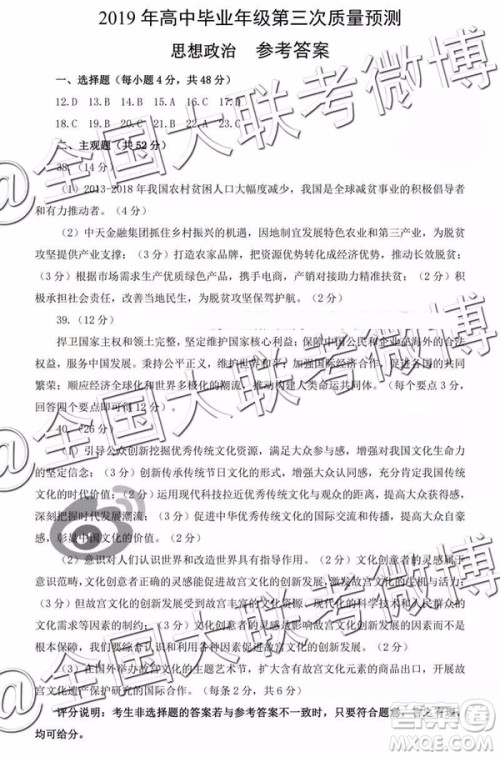 2019 年高中毕业年级第三次质量预测
思想政治 参考答案
一、选择题（每小题 4 分，共 48 分）
12.D 13.B 14.B 15.A 16.C 17.D
18.C 19.B 20.A 21.B 22.A 23.C
二、主观题（共 52 分）
38.（14 分）
（1）2013-2018 年我国农村贫困人口大幅度减少，我国是全球减贫事业的积极倡导者
和有力推动者。（4 分）
（2）中天金融集团抓住乡村振兴的机遇，因地制宜发展特色农业和第三产业，为脱贫
攻坚提供产业支撑；（3 分）打造农家品牌，把资源优势转化成经济优势，推动长效脱贫；
（3 分）根据市场需求生产优质绿色产品，携手电商，产销对接助力脱贫；（2 分）积极承
担社会责任，为脱贫攻坚保驾护航。（2 分）
39.（12 分）
捍卫国家主权和领土完整，坚定维护国家核心利益；保障中国公民和企业在海外的合法
权益，服务中国发展。奉行独立自主和平外交政策，维护世界和平；加强国际经济合作，促进各国共同
繁荣；顺应经济全球化和世界多极化的潮流，推动构建人类命运共同体。（每个要点 3 分，
回答四个要点即可得 12 分。）
40.（26 分）
（1）引导公众创新挖掘优秀传统文化资源，满足大众参与感，增强大众对我国文化生命力
的坚定信念；（3 分）创新传承传统节日文化的形式，增强大众的体验感，实现优秀传统文
化的时代价值；（2 分）运用现代科技拉近优秀传统文化与人们的距离，增强大众现场感，
把握时代发展潮流；（3 分）促进中华优秀传统文化的国际交流和传播，增强大众自豪感，
彰显中国文化的魅力。（2 分）
（2）意识对人们认识世界和改造世界具有指导作用。（2 分）文化创意者的灵感属于
意识范畴，文化创意者的灵感可以推动故宫文化的创新发展，激发故宫文化的生机与活力；
（3 分）但故宫文化的创新发展有丰富的文化资源、现代化的科学技术和人民群众的
（3 分）
（2 分）
（3）在国外举办故宫文化的主题艺术节，扩大含有故宫文化元素的商品出口，开展国际文
化遗产保护研究的国际合作。（每条 2 分，共 6 分）
评分说明：考生非选择题的答案若与参考答案不一致时，只要符合题意，言之有理，
均可给分。
@全国大联考微博
@全国大联考微博
@全国大联考微博
答案圈